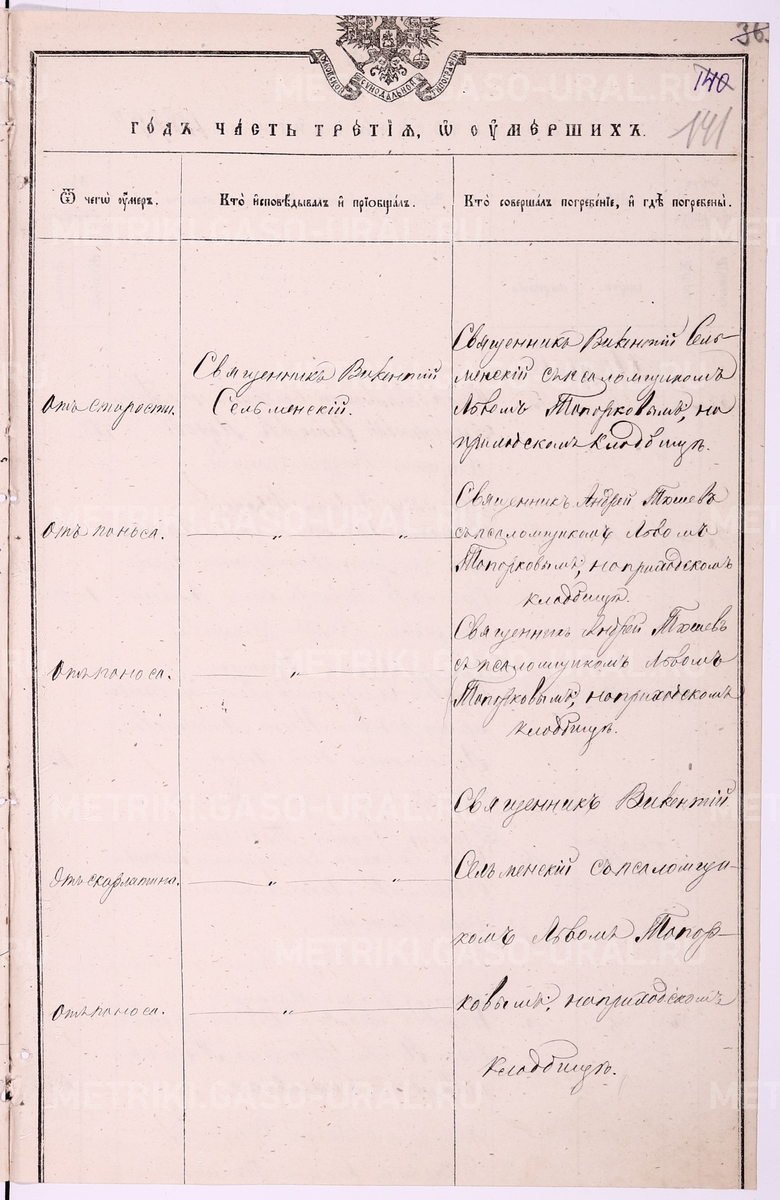 36.
140
141
МОСКОВСКОЙ СѴНОДАЛЬНОЙ ТИПОГРАФІИ
ГО́ДЪ ЧА́СТЬ ТРЕ́ТІѦ, Ѽ ОУ҆МЕ́РШИХЪ.
Ѿ чегѡ̀ оу҆́меръ.
Кто̀ и҆сповѣ́дывалъ и҆ прїѡбща́лъ.
Кто̀ соверша́лъ погребе́нїе, и҆ гдѣ̀ погребены̀.
Отъ старости.
Священникъ Викентій
Сельменскій.
Священникъ Викентій Сель-
менскій съ псаломщикомъ
Львомъ Топорковымъ, на
приходскомъ кладбищѣ.
Отъ поноса.
— „ — „
Священникъ Андрей Тюшевъ
съ псаломщикомъ Львомъ
Топорковымъ, на приходскомъ
кладбищѣ.
Отъ поноса.
— „ —
Священникъ Андрей Тюшевъ
съ псаломщикомъ Львомъ
Топорковымъ, на приходскомъ
кладбищѣ.
Отъ скарлатина.
— „ — „ —
Священникъ Викентій
Сельменскій съ псаломщи-
комъ Львомъ Топор-
ковымъ, на приходскомъ
кладбищѣ.
Отъ поноса.
— „ —
METRIKI.GASO-URAL.RU